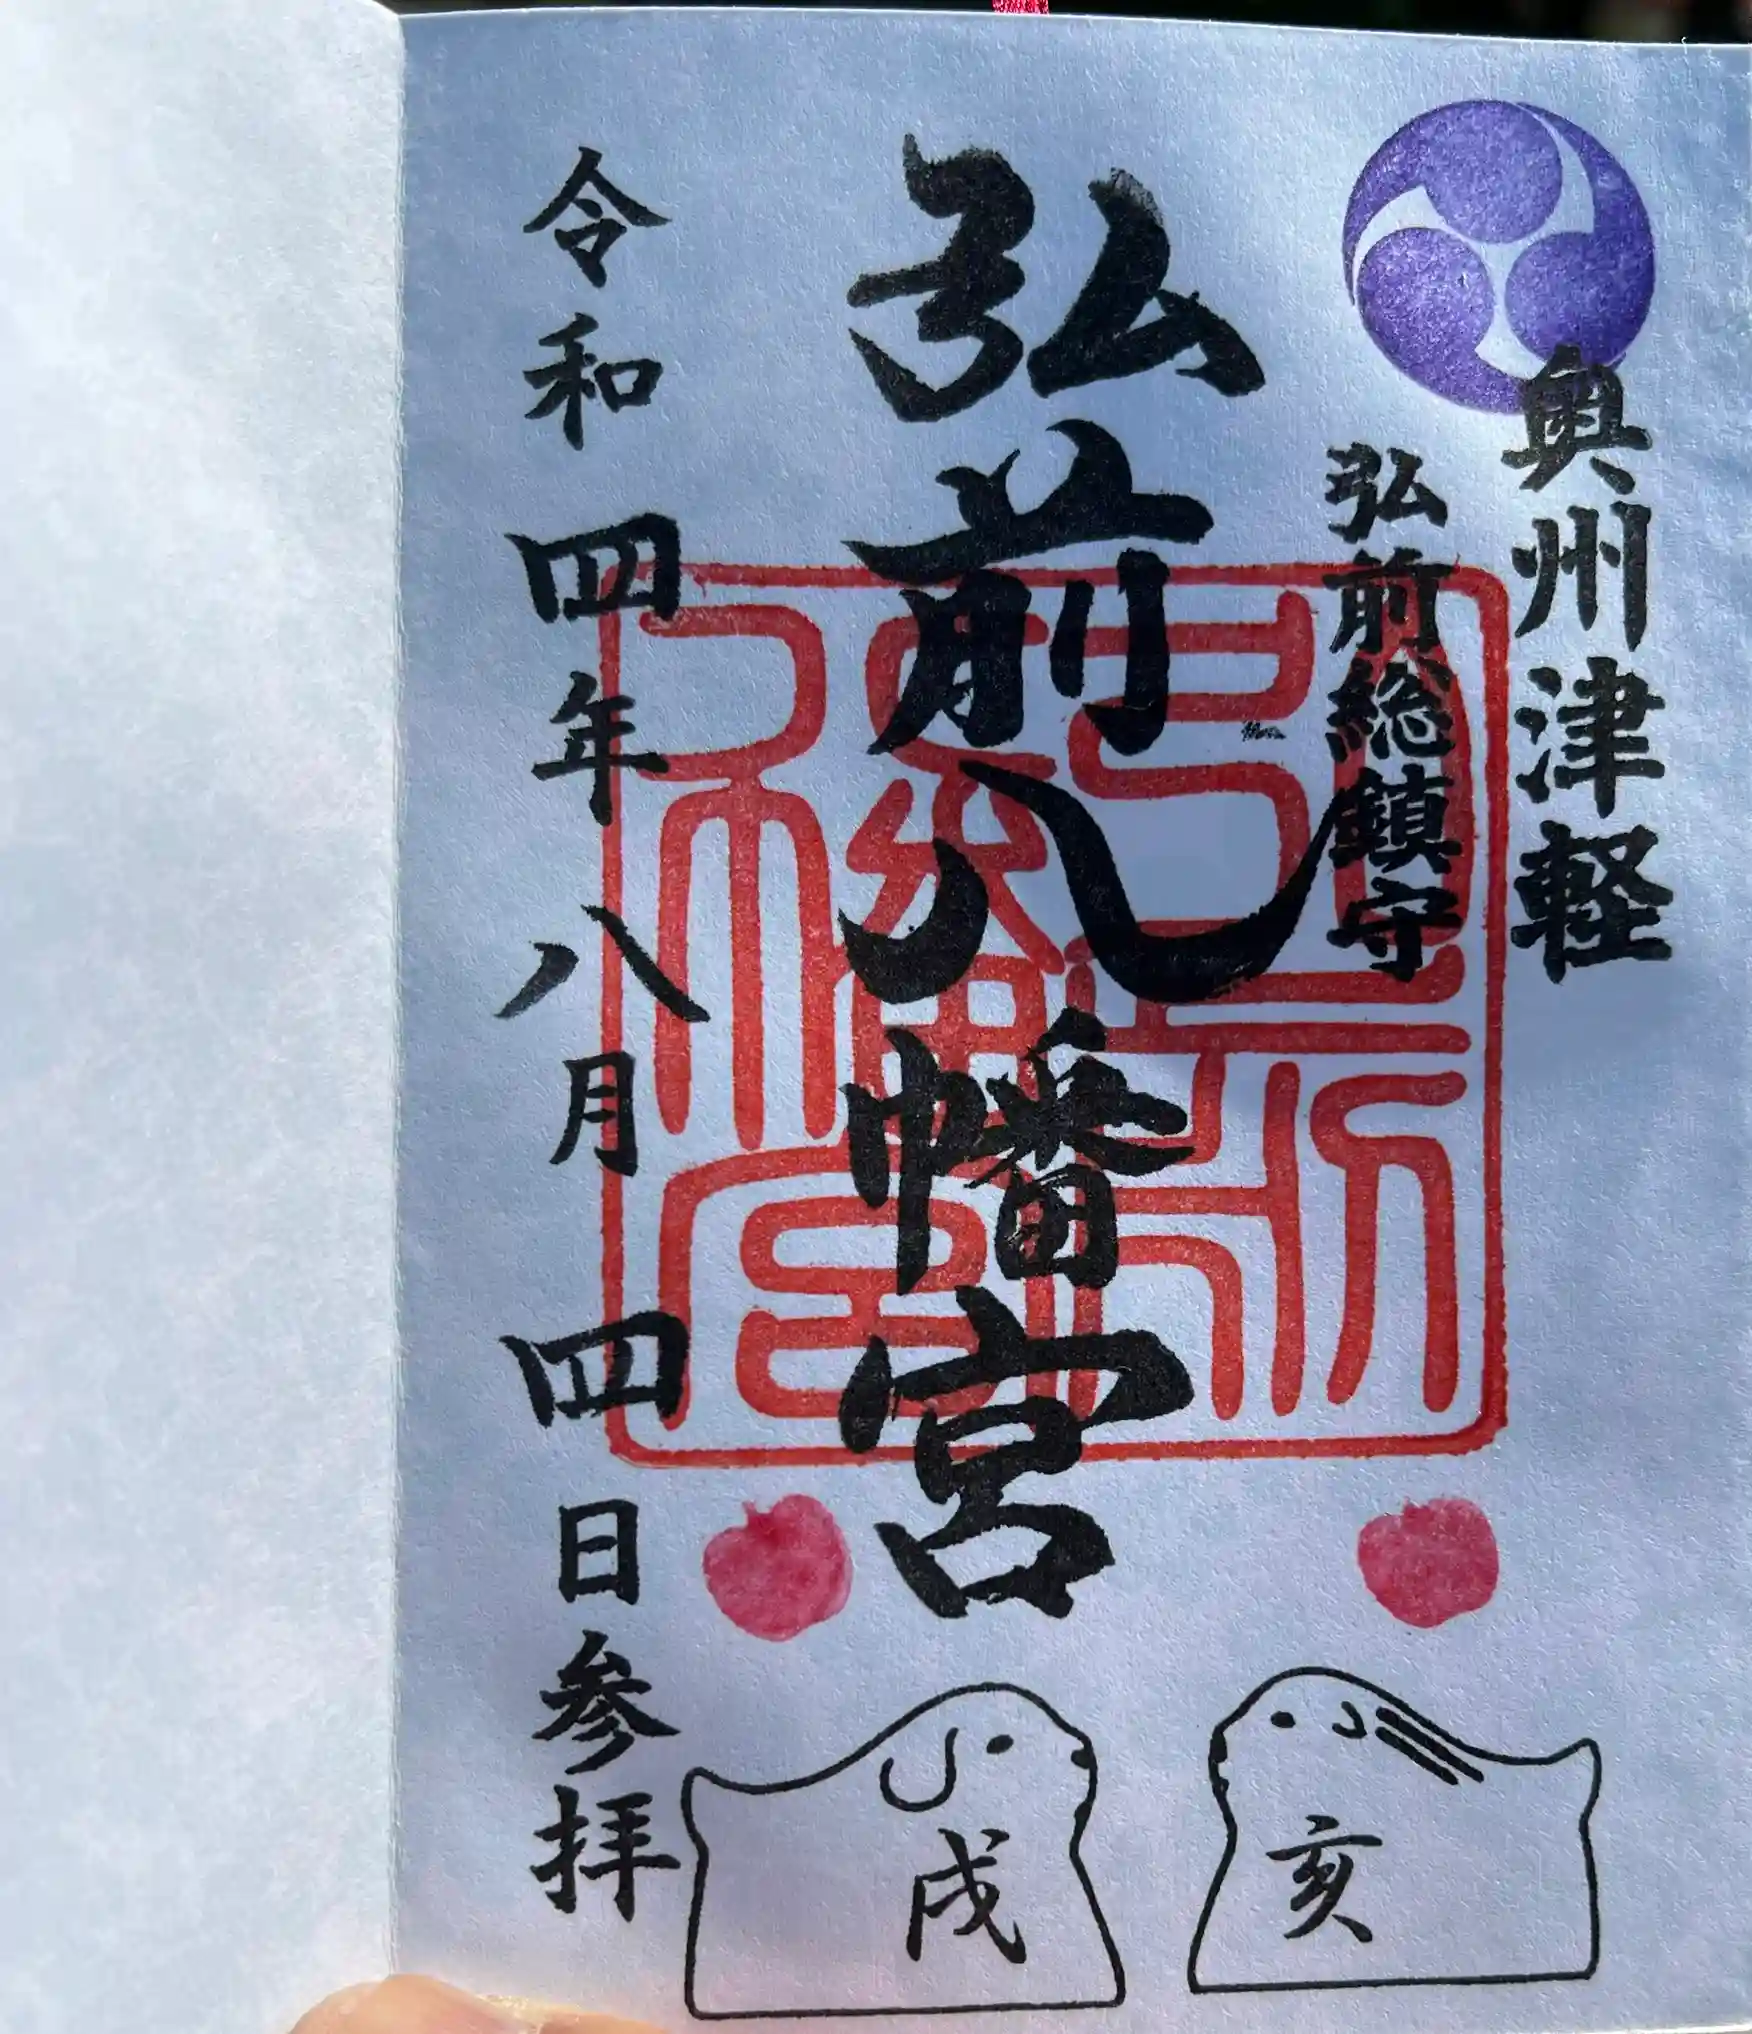 奥州津軽
弘前総鎮守
弘前八幡宮
令和四年八月四日参拝
戌
亥